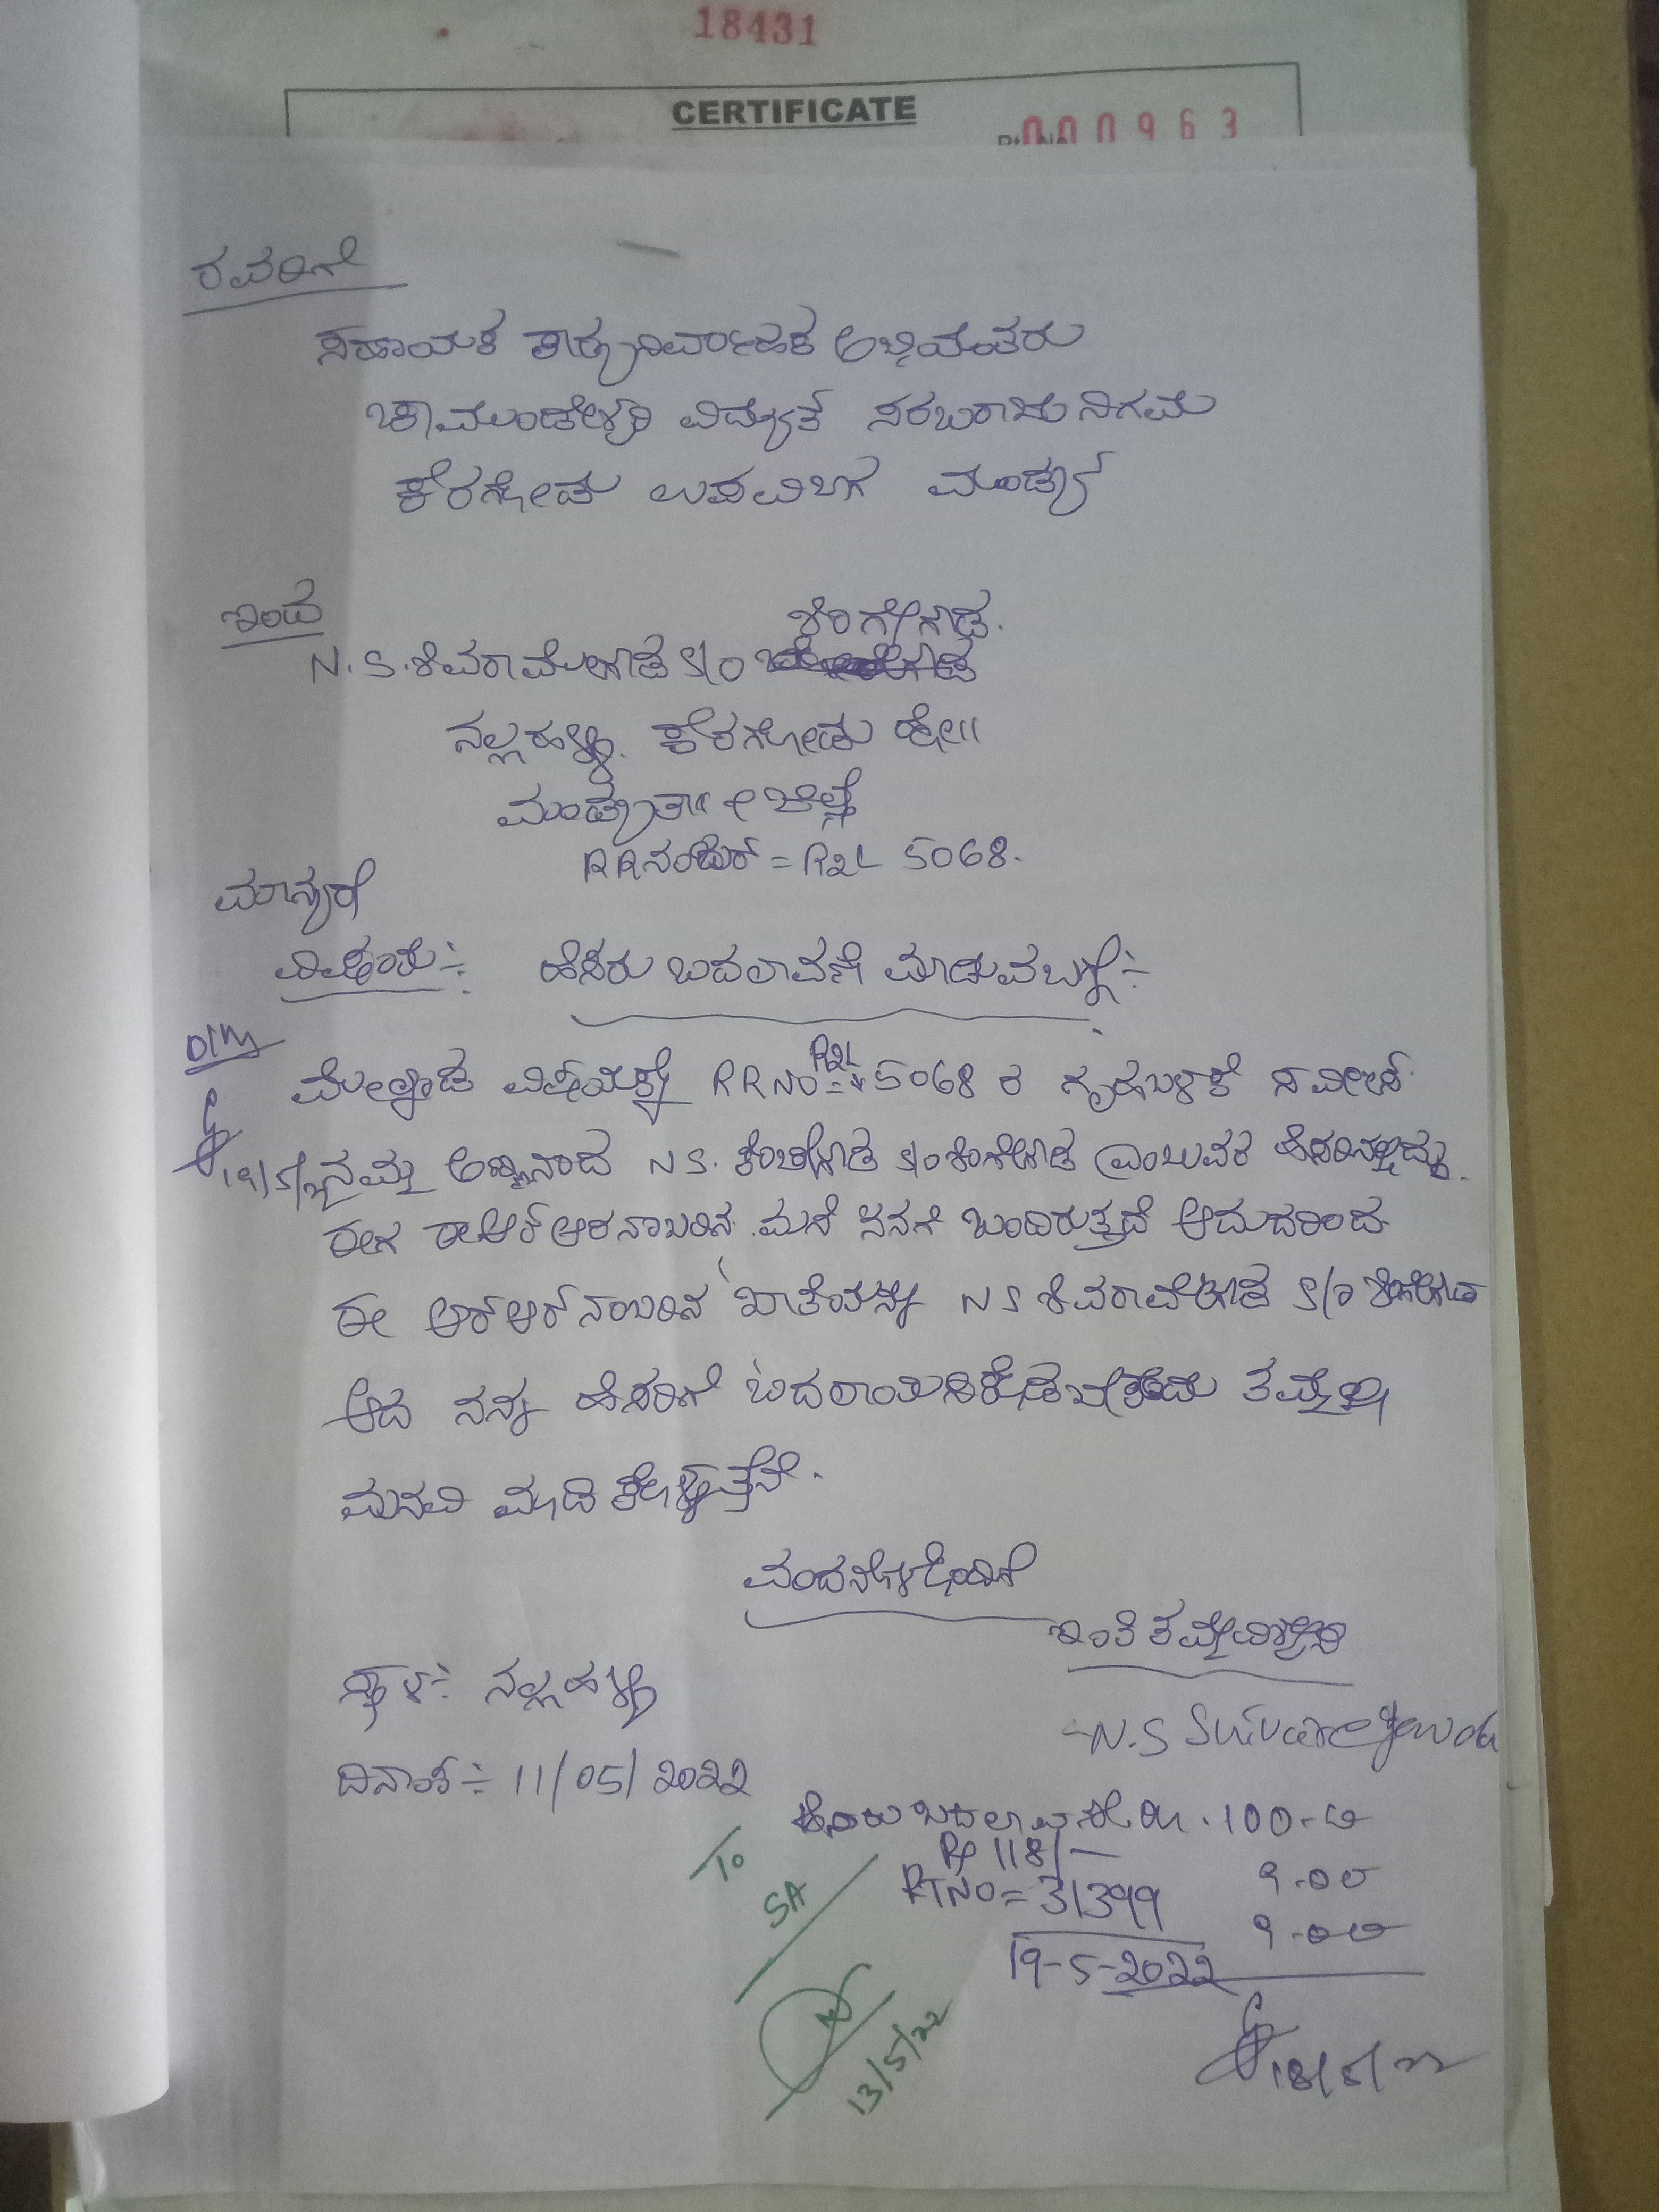 18431
CERTIFICATE
000963
ರವರಿಗೆ
ಸಹಾಯಕ ಕಾರ್ಯನಿರ್ವಾಹಕ ಅಭಿಯಂತರು
ಚಾಮುಂಡೇಶ್ವರಿ ವಿದ್ಯುತ್ ಸರಬರಾಜು ನಿಗಮ
ಕೆರಗೋಡು ಉಪವಿಬಾಗ ಮಂಡ್ಯ
ಇಂದ
N.S.ಶಿವರಾಮೇಗೌಡ S/O
ನಲ್ಲಹಳ್ಳಿ. ಕೆರಗೋಡು ಹೋ॥
ಮಂಡ್ಯತಾ॥ ಜಿಲ್ಲೆ
RRನಂಬರ್ = R2L 5068.
ಮಾನ್ಯರೆ
ವಿಷಯ:- ಹೆಸರು ಬದಲಾವಣೆ ಮಾಡುವ ಬಗ್ಗೆ:-
ಮೇಲ್ಕಂಡ ವಿಷಯಕ್ಕೆ RRNO= R2L 5068 ರ ಗೃಹಬಳಕೆ
19/5/22 ನಮ್ಮ ಅಣ್ಣನಾದ N S. S/o ಎಂಬುವರ ಹೆಸರಿನಲ್ಲಿದ್ದು.
ಈಗ ಈ ಆರ್ ಆರ್ ನಂಬರಿನ ಮನೆ ನನಗೆ ಬಂದಿರುತ್ತದೆ ಆದುದರಿಂದ
ಈ ಆರ್ ಆರ್ ನಂಬರಿನ ಖಾತೆಯನ್ನು N S ಶಿವರಾಮೇಗೌಡ S/o
ಆದ ನನ್ನ ಹೆಸರಿಗೆ ತಮ್ಮಲ್ಲಿ
ಮನವಿ ಮಾಡಿ ಕೇಳುತ್ತೇನೆ.
ವಂದನೆಗಳೊಂದಿಗೆ
ಇಂತಿ ತಮ್ಮ ವಿಶ್ವಾಸಿ
ಸ್ಥಳ:- ನಲ್ಲಹಳ್ಳಿ
ದಿನಾಂಕ:- 11/05/2022
ಹೆಸರು ಬದಲಾವಣೆ 100-00
Rs 118/-
To
SA
RTNO= 31399
9.00
9.00
19-5-2022
13/5/22
18/5/22